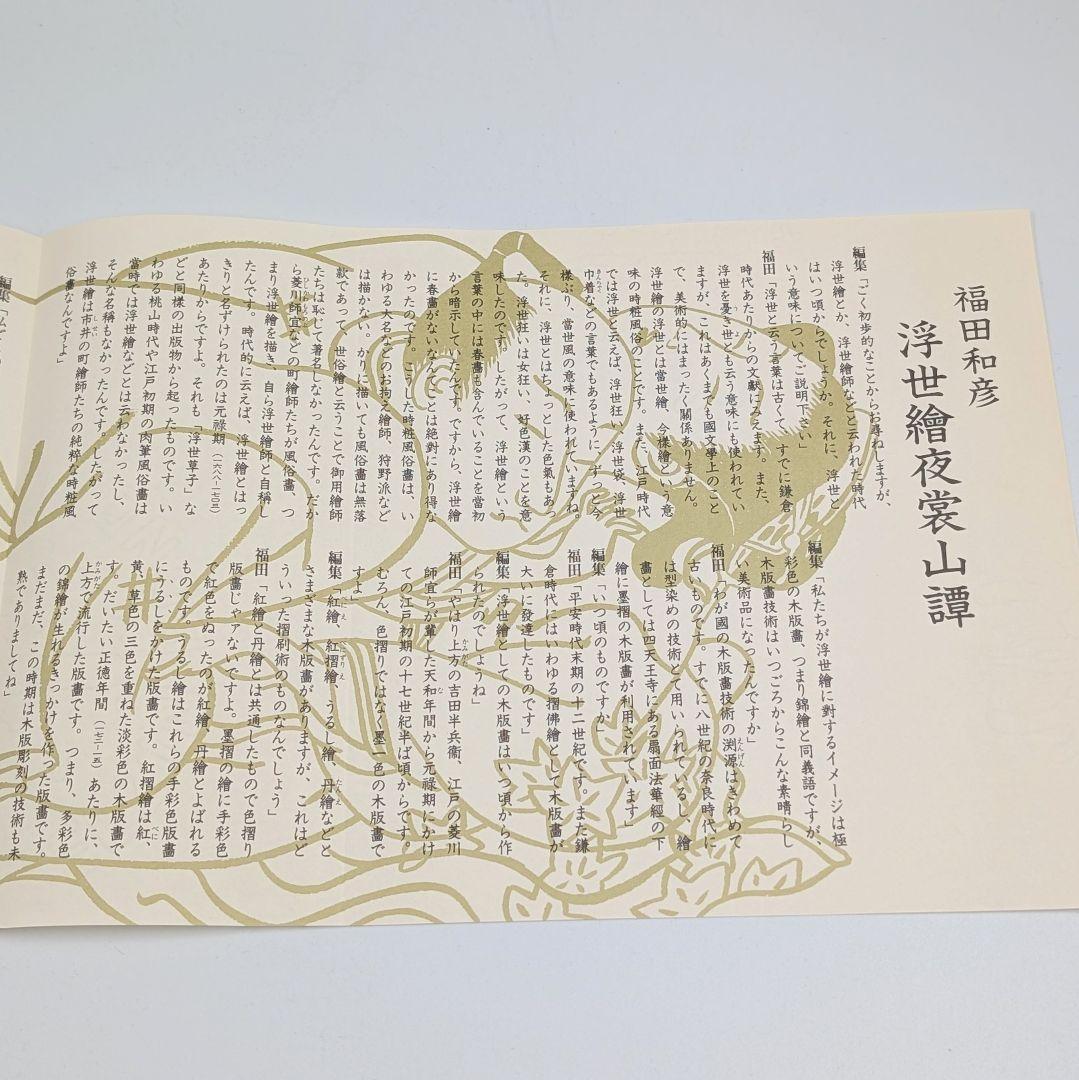 福田和彦
浮世繪夜裳山譚
編集「ごく初歩的なことからお尋ねしますが、
浮世繪とか、浮世繪師などと云われた時代
はいつ頃からでしょうか。それに、浮世と
いう意味についてご説明下さい」
福田「浮世と云う言葉は古くて、すでに鎌倉
時代あたりからの文献にみえます。また、
浮世を憂き世とも云う意味にも使われてい
ますが、これはあくまでも國文學上のこと
で、美術的にはまったく關係ありません。
浮世繪の浮世とは當世繪、今様繪という意
味の時粧風俗のことです。また、江戸時代
では浮世と云えば、浮世狂い、浮世袋、浮世
巾着などの言葉でもあるように、ずっと今
様ぶり、當世風の意味に使われていますね。
それに、浮世とはちょっとした色氣もあっ
た。浮世狂いは女狂い、好色漢のことを意
味したのです。したがって、浮世繪という
言葉の中には春畵も含んでいることを當初
から暗示していたんです。ですから、浮世繪
に春畵がないなんてことは絶對にあり得な
かったのです。こうした時粧風俗畵は、い
わゆる大名などのお拘え繪師、狩野派など
は描かない。かりに描いても風俗畵は無落
款であって、世俗繪と云うことで御用繪師
たちは恥じて著名しなかったんです。だか
ら菱川師宣などの町繪師たちが風俗畵、つ
まり浮世繪を描き、自ら浮世繪師と自稱し
たんです。時代的に云えば、浮世繪とはっ
きりと名ずけられたのは元禄期（一六八八-一七〇三）
あたりからですよ。それも「浮世草子」な
どと同様の出版物から起ったものです。い
わゆる桃山時代や江戸初期の肉筆風俗畵は
當時では浮世繪などとは云わなかったし、
そんな名稱もなかったんです。したがって
浮世繪は市井の町繪師たちの純粋な時粧風
俗畵なんですよ」
編集「私たちが浮世繪に對するイメージは極
彩色の木版畵、つまり錦繪と同義語ですが、
木版畵技術はいつごろからこんな素晴らし
い美術品になったんですか」
福田「わが國の木版畵技術の渕源はきわめて
古いものです。すでに八世紀の奈良時代に
は型染めの技術とて用いられているし、繪
畵としては四天王寺にある扇面法華經の下
繪に墨摺の木版畵が利用されています」
編集「いつ頃のものですか」
福田「平安時代末期の十二世紀です。また鎌
倉時代にはいわゆる摺佛繪として木版畵が
大いに發達したものです」
編集「浮世繪としての木版畵はいつ頃から作
られたのでしょうね」
福田「やはり上方の吉田半兵衞、江戸の菱川
師宣らが輩した天和年間から元禄期にかけ
ての江戸初期の十七世紀半ば頃からです。
むろん、色摺りではなく墨一色の木版畵で
すよ」
編集「紅繪、紅摺繪、うるし繪、丹繪などと
さまざまな木版畵がありますが、これはど
ういった摺刷術のものなんでしょう」
福田「紅繪と丹繪とは共通したもので色摺り
版畵じゃアないですよ。墨摺の繪に手彩色
で紅色をぬったのが紅繪、丹繪とよばれる
ものです。うるし繪はこれらの手彩色版畵
に、うるしをかけた版畵です。紅摺繪は紅、
黄、草色の三色を重ねた淡彩色の木版畵で
す。だいたい正徳年間（一七一一-一五）あたりに、
上方で流行した版畵です。つまり、多彩色
の錦繪が生れるきっかけを作った版畵です。
まだまだ、この時期は木版彫刻の技術も未
熟でありましてね」
編集「